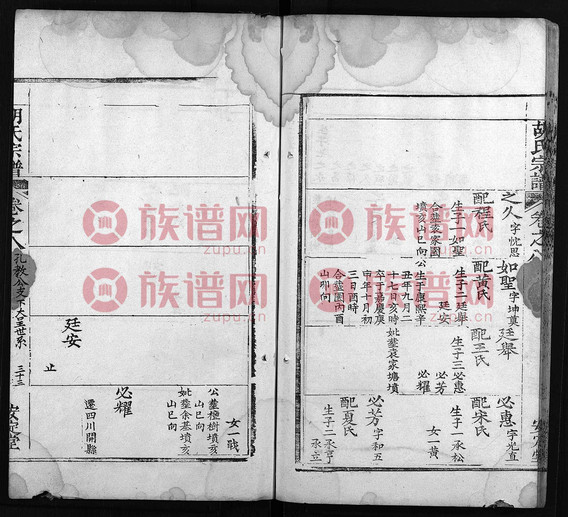 胡氏宗譜
卷之八
之久 字忱思
配程氏
生子一如聖
合塟袁家園
墳亥山巳向
如聖 字坤奠
配黃氏
生子二廷舉
廷安
公生于康熙辛
丑年九月二
十七日亥時
卒于嘉慶庚
申年十月初
三日酉時
合塟園內酉
山卯向
廷舉
配王氏
生子三必惠
必芳
必耀
妣塟袁家塘墳
必惠 字光直
配宋氏
生子一承松
女一黃
必芳 字和五
配夏氏
生子二承亨
承立
安定堂
女一戢
公塟極樹墳亥
山巳向
妣塟余基墳亥
山巳向
必耀
遷四川開縣
廷安
止
胡氏宗譜
卷之八
孔教公支下大圣世系
三十三
安定堂
族谱网
zupu.cn
族谱网
zupu.cn
族谱网
zupu.cn
族谱网
zupu.cn